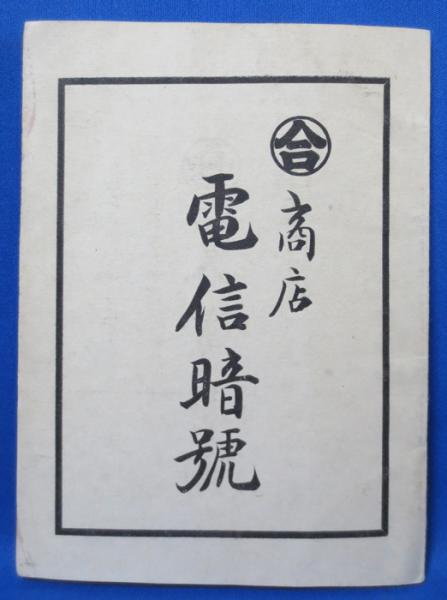 合商店
電信暗號